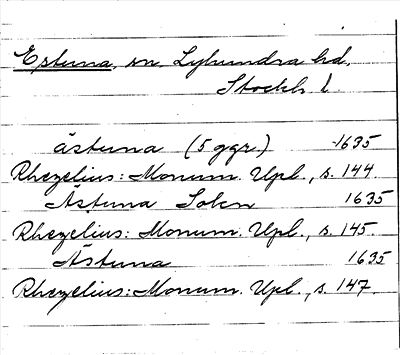 Estuna, sn. Lyhundra hd,
Stockh. l.
ästuna (5 ggr.) 1635
Rhezelius: Monum. Upl., s. 144.
Ästuna Sokn 1635
Rhezelius: Monum. Upl., s. 145.
Ästuna 1635
Rhezelius: Monum. Upl., s. 147.